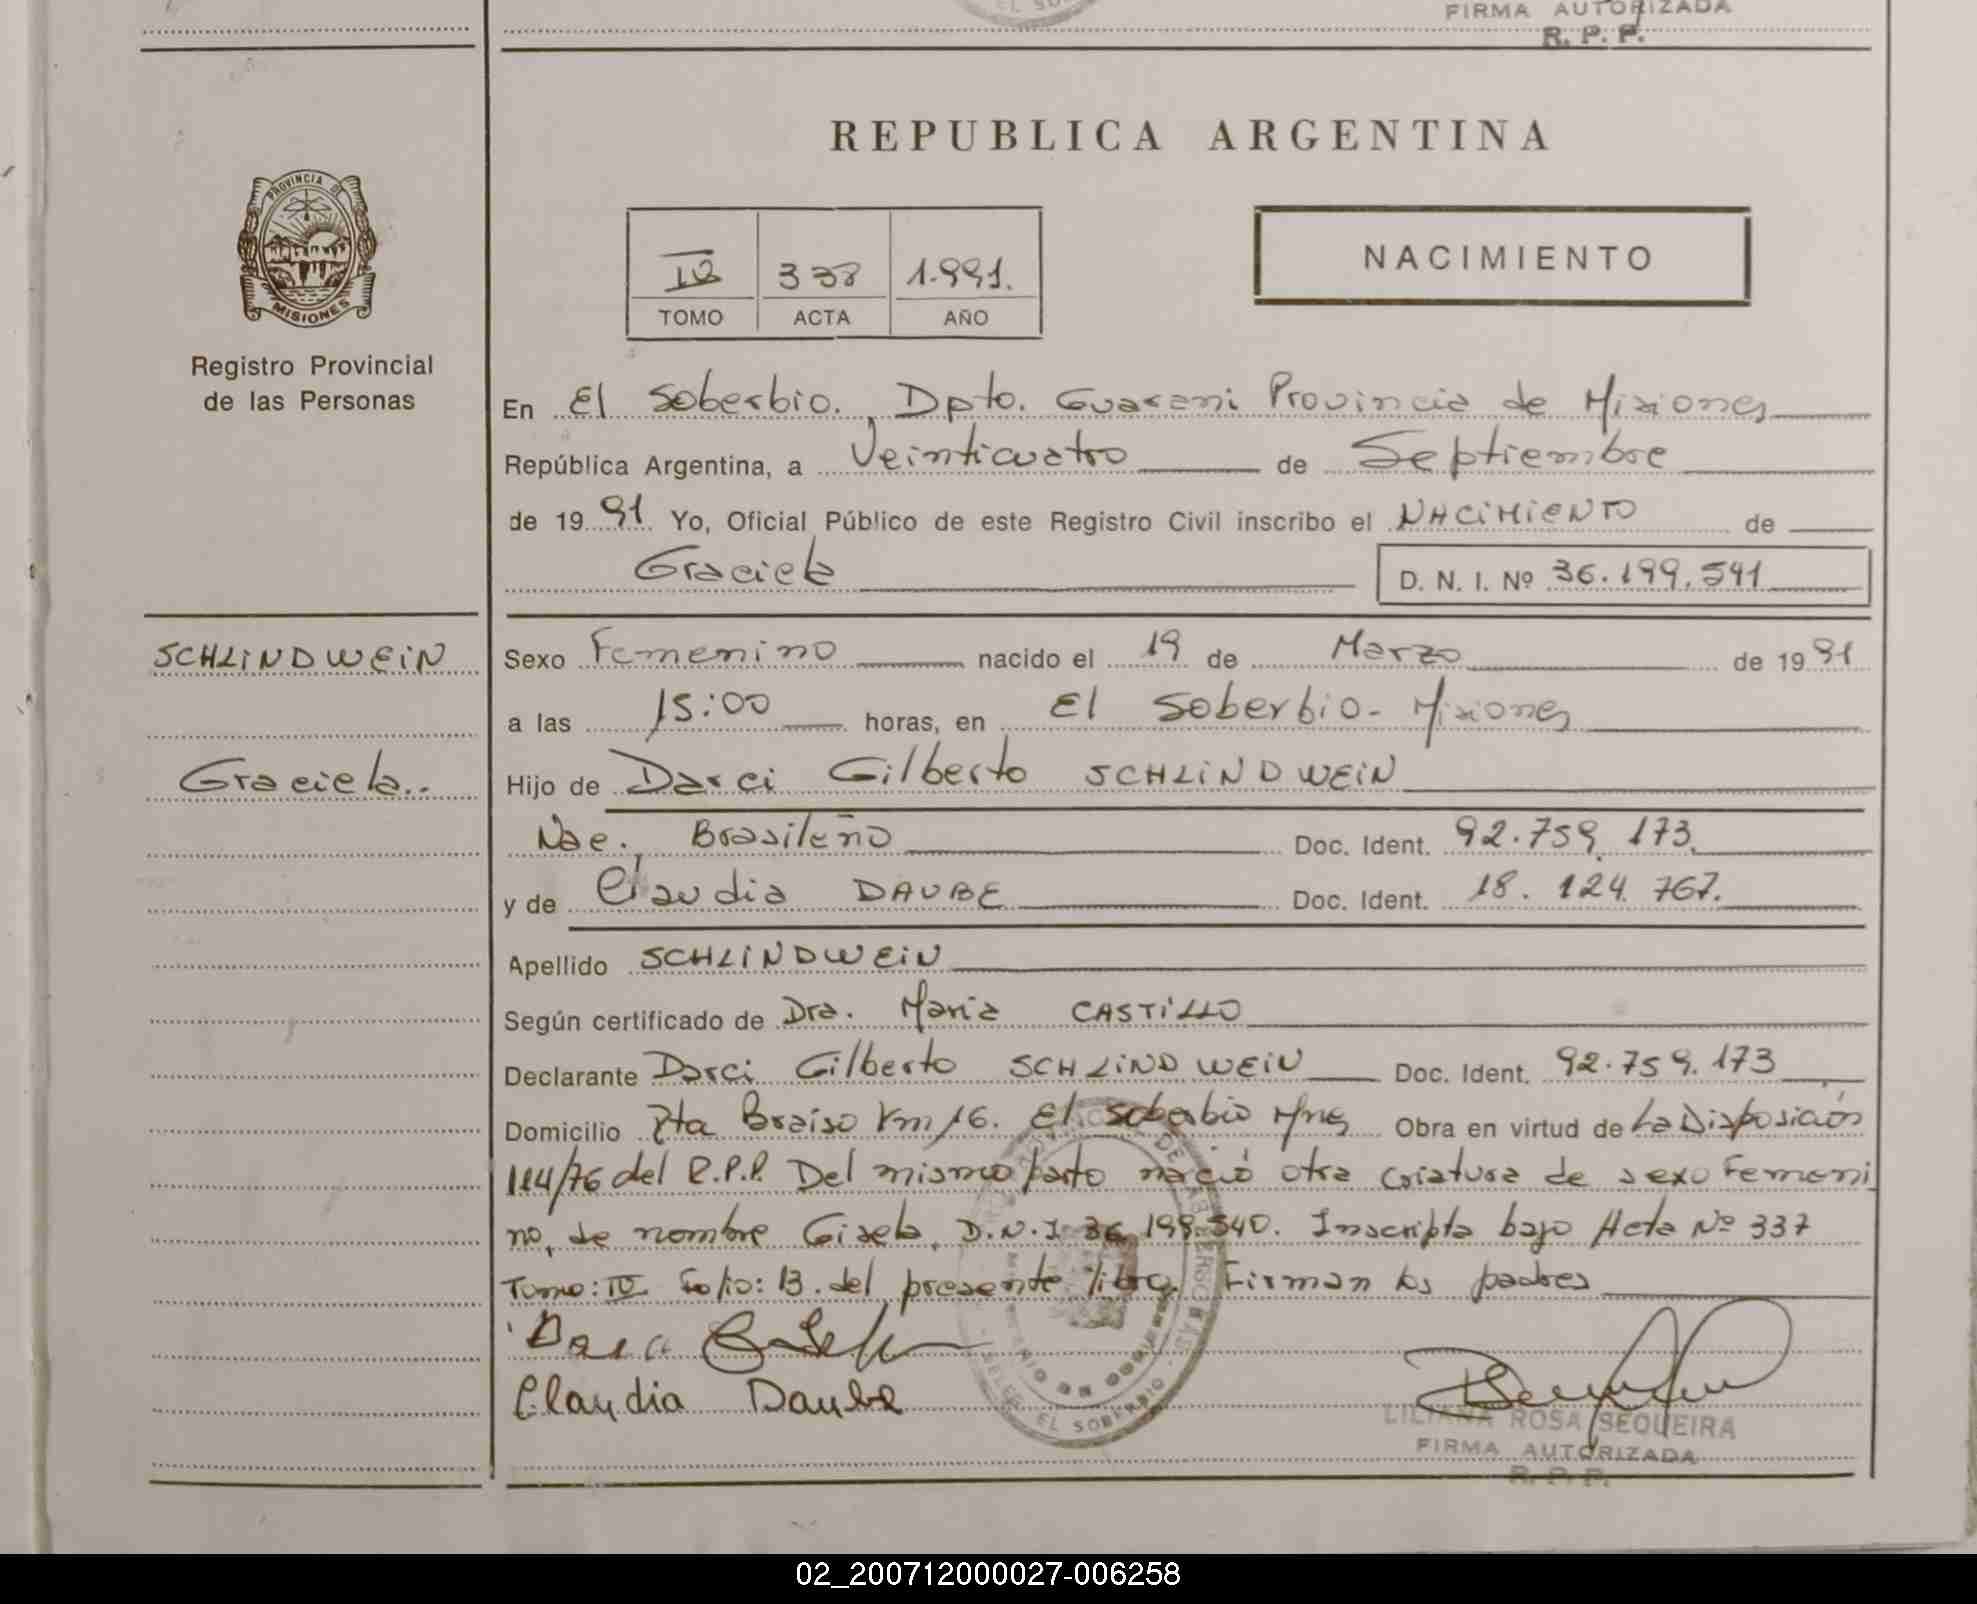 FIRMA AUTORIZADA
R. P. P.
REPUBLICA ARGENTINA
PROVINCIA DE
MISIONES
Registro Provincial
de las Personas
IV 338 1.991.
TOMO ACTA AÑO
NACIMIENTO
En El Soberbio. Dpto. Guarani Provincia de Misiones
República Argentina, a Veinticuatro de Septiembre
de 19 91 Yo, Oficial Público de este Registro Civil inscribo el NACIMIENTO de
Graciela D. N. I. Nº 36.199.541
SCHLINDWEIN
Graciela..
Sexo Femenino nacido el 19 de Marzo de 19 91
a las 15:00 horas, en El Soberbio - Misiones
Hijo de Darci Gilberto SCHLINDWEIN
Nac. Brasileño Doc. Ident. 92.759.173
y de Claudia DAUBE Doc. Ident. 18.124.767.
Apellido SCHLINDWEIN
Según certificado de Dra. Maria CASTILLO
Declarante Darci Gilberto SCHLINDWEIN Doc. Ident. 92.759.173
Domicilio Braiso Km 16. El Soberbio Mnes Obra en virtud de La Disposición
114/76 del R.P.P. Del mismo parto nació otra criatura de sexo Femeni
no, de nombre Gisela, D.N.I 36.199.540. Inscripta bajo Acta Nº 337
Tomo: IV Folio: 13. del presente libro. Firman los padres
Claudia Daube
EL SOBERBIO
LILIANA ROSA SEQUEIRA
FIRMA AUTORIZADA
R. P. P.
02_200712000027-006258